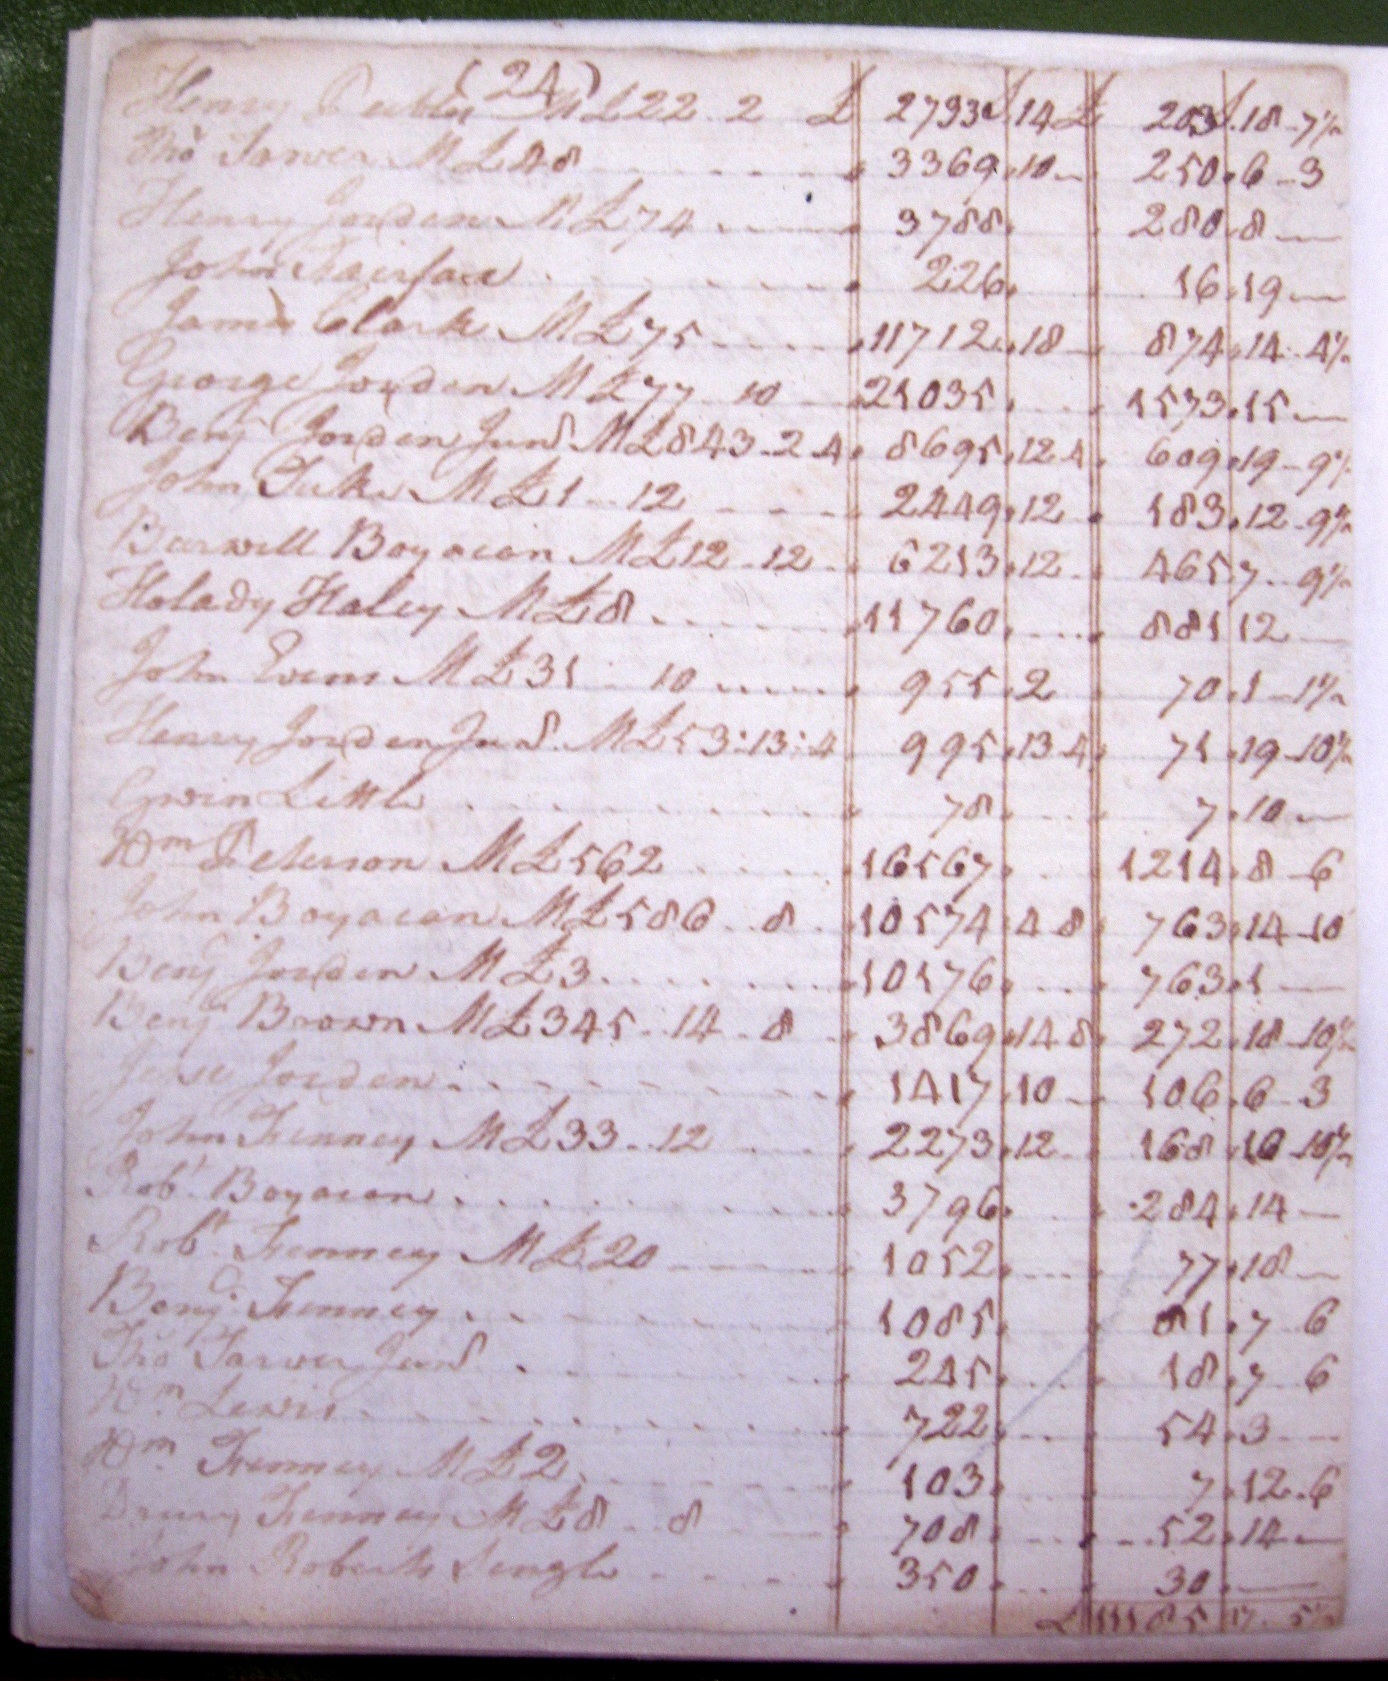 (24)
Henry M £22 2 £ 2793 14 £ 203 18 7½
Tho Tarver M £48 3369 10 250 6 3
Henry Jordan M £74 3788 280 8
John Fairfax 226 16 19
James Clark M £75 11712 18 874 14 4½
George Jordan M £77 10 21035 1573 15
Benj Jordan Junr M £843 2 4 8695 12 4 609 19 9½
John Tuke M £1 12 2449 12 183 12 9½
Burwell Boyacan M £12 12 6213 12 465 7 9½
Holady Haley M £8 11760 881 12
John Evens M £31 10 955 2 70 1 1½
Henry Jordan Junr M £53:13:4 995 13 4 71 19 10½
Gwin Little 78 7 10
Wm Peterson M £562 16567 1214 8 6
John Boyacan M £586 8 10574 4 8 763 14 10
Benj Jordan M £3 10176 763 1
Benj Brown M £345 14 8 3869 14 8 272 18 10½
Jesse Jordan 1417 10 106 6 3
John Fenney M £33 12 2273 12 168 10½
Robt Boyacan 3796 284 14
Robt Fenney M £20 1052 77 18
Benj Fenney 1085 81 7 6
Tho Tarver Junr 245 18 7 6
Wm Lewis 722 54 3
Wm Fenney M £2 103 7 12 6
Drury Fenney M £8 8 708 52 14
John Roberts Single 350 30
£ 11185 17 5½